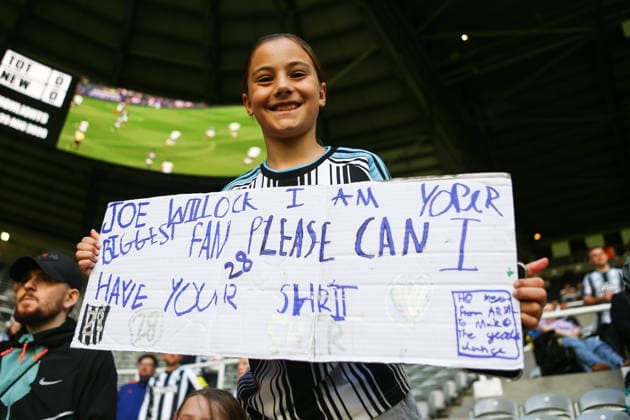 TOT 0
NEW 0
JOE WILLOCK I AM YOUR
BIGGEST FAN PLEASE CAN I
28
HAVE YOUR SHRIT
28
HE
From
To Make
The
change